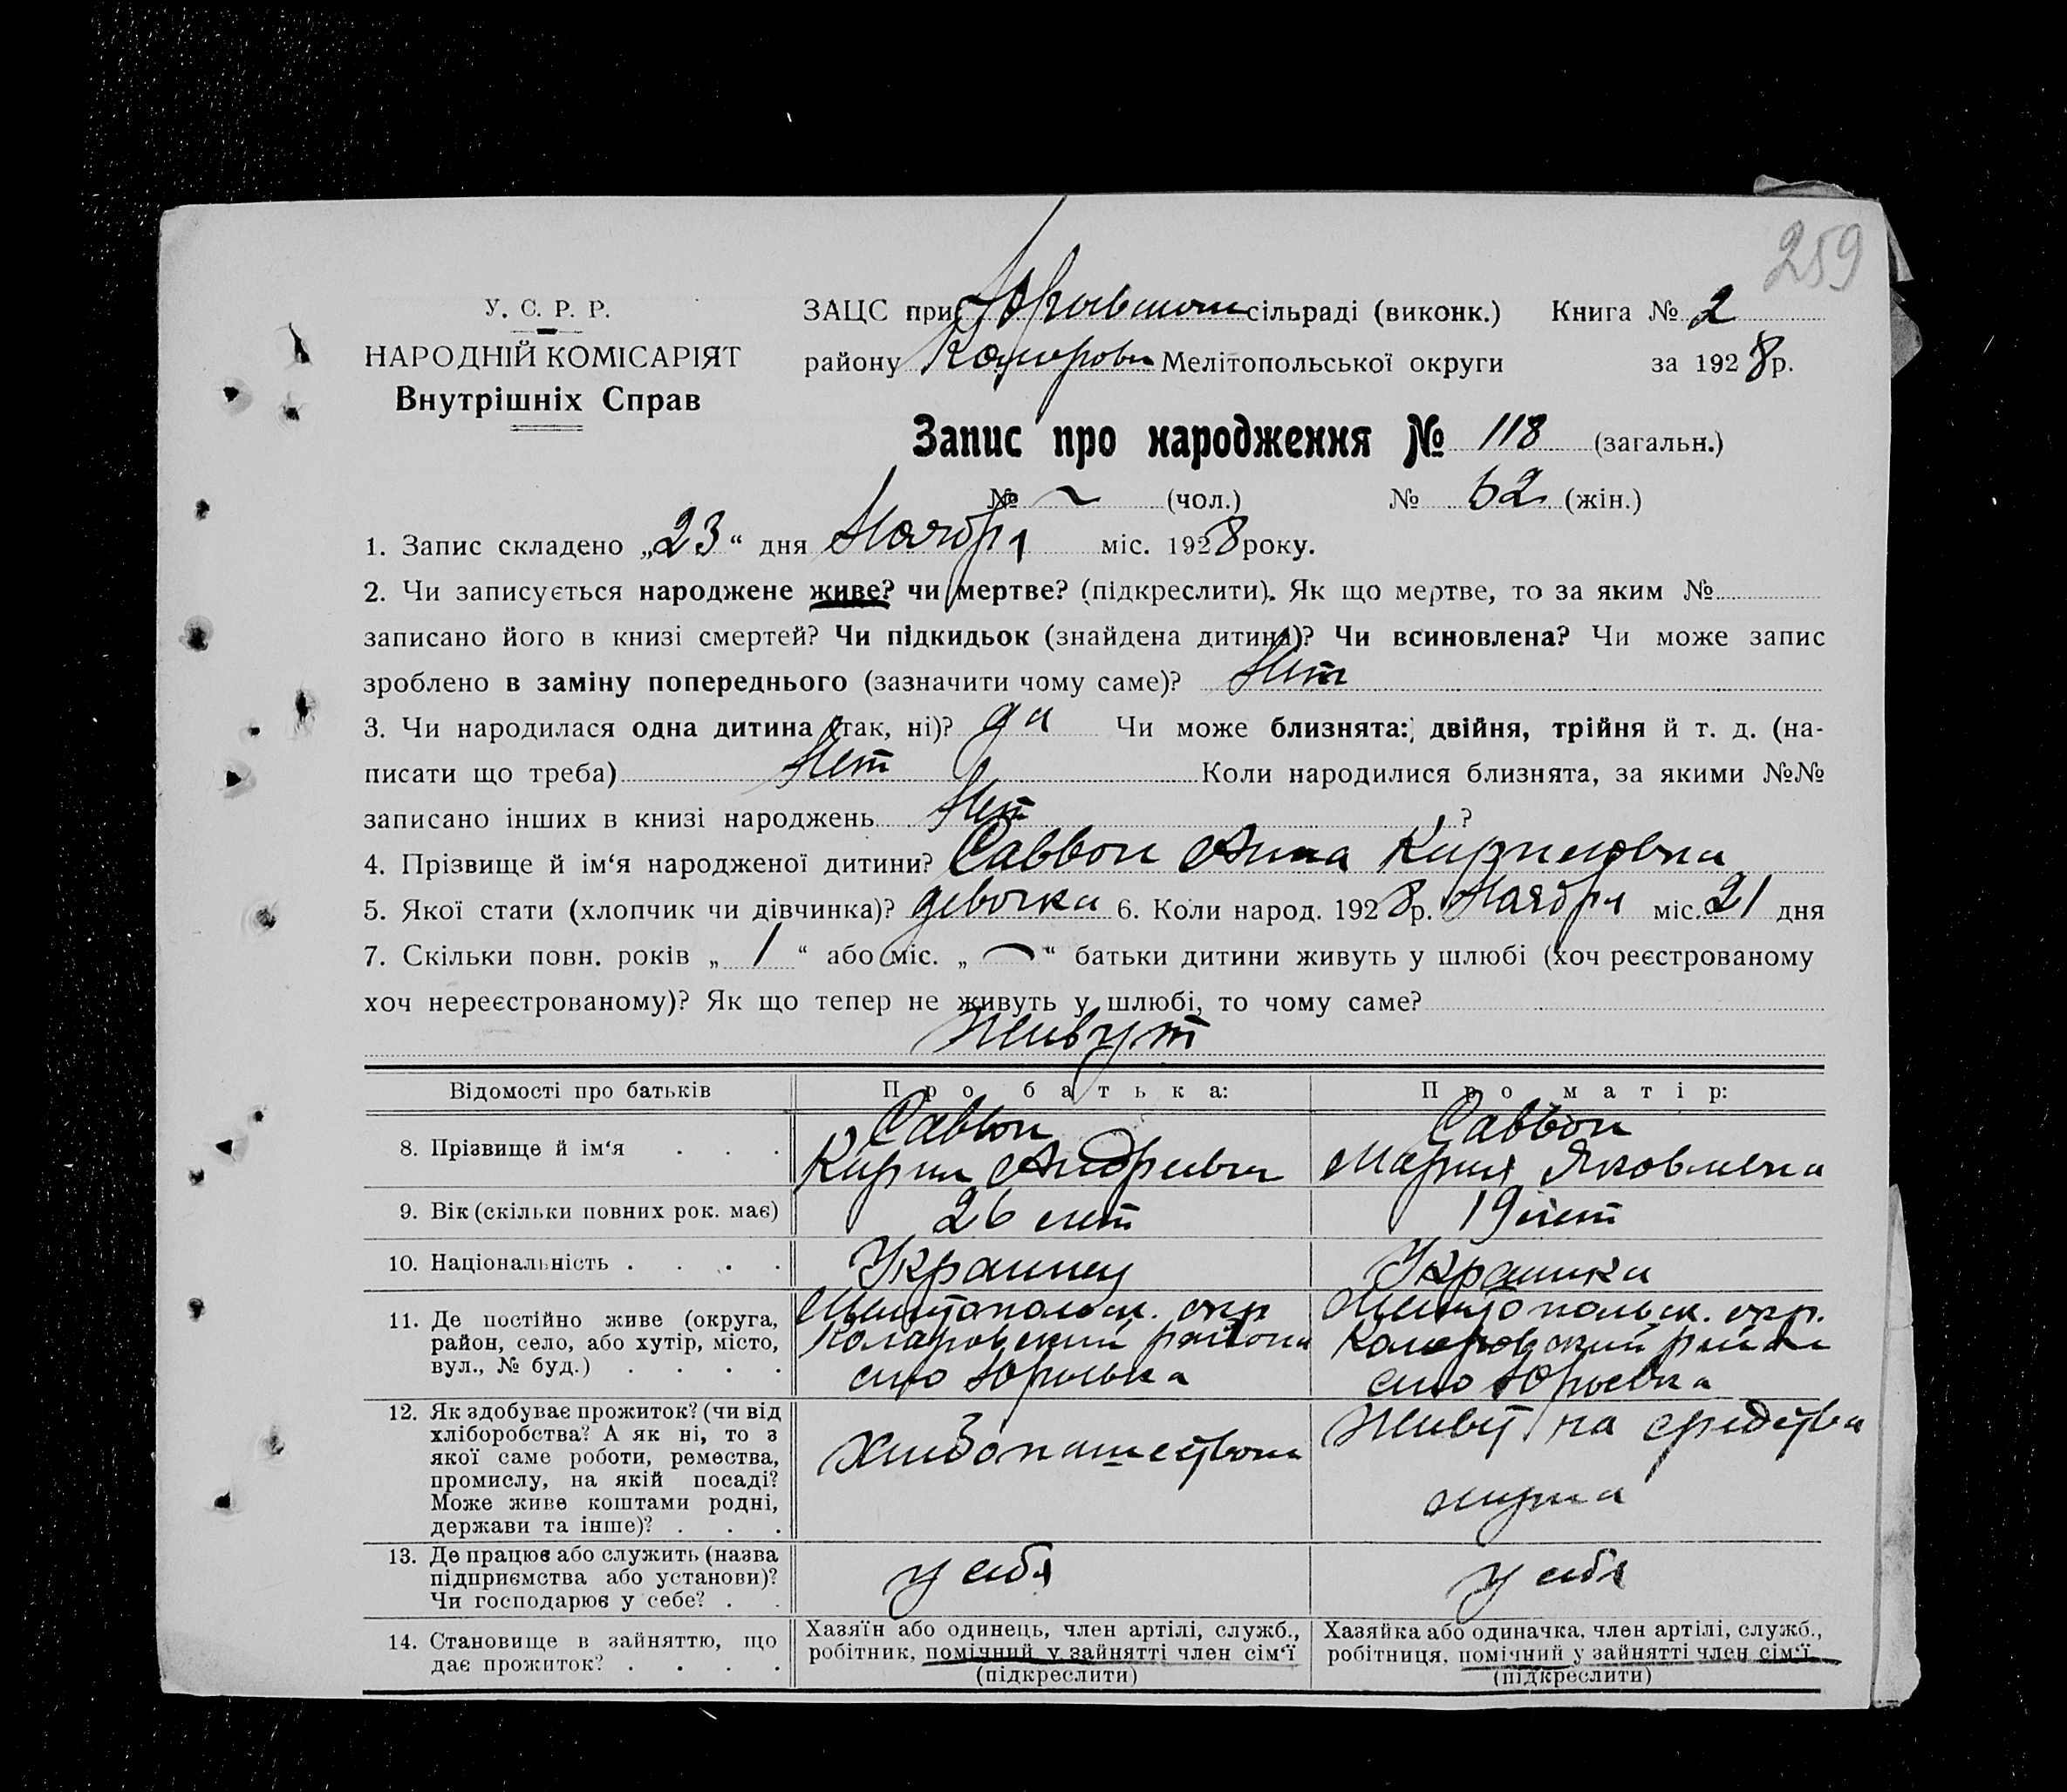 259
У. С. Р. Р.
НАРОДНІЙ КОМІСАРІЯТ
Внутрішніх Справ
ЗАЦС при Юрьевском сільраді (виконк.) Книга № 2
району Коларовск Мелітопольської округи за 1928 р.
Запис про народження № 118 (загальн.)
№ ~ (чол.) № 62 (жін.)
1. Запис складено „23“ дня Ноября міс. 1928 року.
2. Чи записується народжене живе? чи мертве? (підкреслити). Як що мертве, то за яким №
записано його в книзі смертей? Чи підкидьок (знайдена дитина)? Чи всиновлена? Чи може запис
зроблено в заміну попереднього (зазначити чому саме)? Нет
3. Чи народилася одна дитина (так, ні)? да Чи може близнята: двійня, трійня й т. д. (на-
писати що треба) Нет Коли народилися близнята, за якими №№
записано інших в книзі народжень Нет ?
4. Прізвище й ім‘я народженої дитини? Саввон Анна Кириловна
5. Якої стати (хлопчик чи дівчинка)? девочка 6. Коли народ. 1928 р. Ноября міс. 21 дня
7. Скільки повн. років „ 1 “ або міс. „ — “ батьки дитини живуть у шлюбі (хоч реєстрованому
хоч нереєстрованому)? Як що тепер не живуть у шлюбі, то чому саме?
Живут
Відомості про батьків Про батька: Про матір:
8. Прізвище й ім‘я . . . Саввон Кирил Андреевич Саввон Мария Яковлевна
9. Вік (скільки повних рок. має) 26 лет 19 лет
10. Національність . . . . Украинец Украинка
11. Де постійно живе (округа,
район, село, або хутір, місто,
вул., № буд.) . . . .
Мелитопольск. окр
Коларовский района
село Юрьевка
Мелитопольск. окр.
Коларовский район
село Юрьевка
12. Як здобуває прожиток? (чи від
хліборобства? А як ні, то з
якої саме роботи, ремества,
промислу, на якій посаді?
Може живе коштами родні,
держави та інше)? . . .
Хлебопашеством
Живет на средства
мужа
13. Де працює або служить (назва
підприємства або установи)?
Чи господарює у себе? . .
у себя
у себя
14. Становище в зайняттю, що
дає прожиток? . . . .
Хазяїн або одинець, член артілі, служб.,
робітник, помічний у зайнятті член сім‘ї
(підкреслити)
Хазяйка або одиначка, член артілі, служб.,
робітниця, помічний у зайнятті член сім‘ї
(підкреслити)